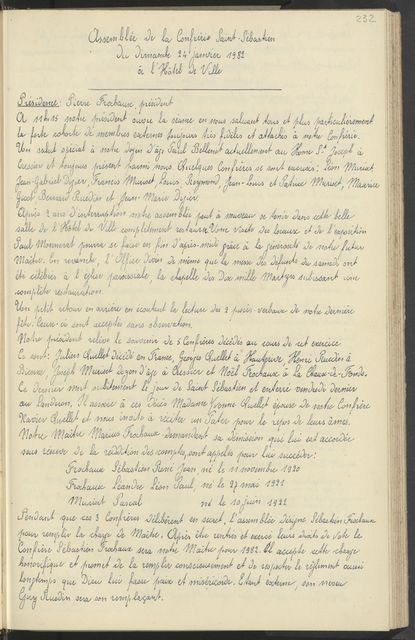 232
Assemblée de la Confrérie Saint-Sébastien
du dimanche 24 janvier 1982
à l'Hôtel de Ville
Présidence: Pierre Frochaux, président
A 11h15 notre président ouvre la séance en nous saluant tous et plus particulièrement
la forte cohorte de membres externes toujours très fidèles et attachés à notre Confrérie.
Un salut spécial à notre doyen d'âge Paul Bellenot actuellement au Home St Joseph à
Cressier et toujours présent parmi nous. Quelques Confrères se sont excusés: Léon Muriset,
Jean-Gabriel Digier, Francis Muriset, Louis Raymond, Jean-Louis et Patrice Muriset, Maurice
Girod, Bernard Ruedin et Jean-Marie Digier.
Après 2 ans d'interruption notre assemblée peut à nouveau se tenir dans cette belle
salle de l'Hôtel de Ville complètement restaurée. Une visite des locaux et de l'exposition
Paul Monnerat pourra se faire en fin d'après-midi grâce à la générosité de notre futur
Maître. En revanche, l'Office divin de même que la messe des défunts du samedi ont
été célébrés à l'église paroissiale, la chapelle des Dix mille Martyrs subissant une
complète restauration.
Un petit retour en arrière en écoutant la lecture des 2 procès verbaux de notre dernière
fête. Ceux-ci sont acceptés sans observation.
Notre président relève le souvenir de 5 Confrères décédés au cours de cet exercice.
Ce sont: Julien Quellet décédé en France, Georges Quellet à Hauterive, Henri Ruedin à
Bienne, Joseph Muriset doyen d'âge à Cressier et Noël Frochaux à La Chaux-de-Fonds.
Ce dernier mort subitement le jour de Saint Sébastien et enterré vendredi dernier
au Landeron. Il associe à ces décès Madame Yvonne Quellet épouse de notre Confrère
Xavier Quellet et nous invite à réciter un Pater pour le repos de leurs âmes.
Notre Maître Marius Frochaux demandant sa démission que lui est accordée
sous réserve de la reddition des comptes, sont appelés pour lui succéder:
Frochaux Sébastien René Jean, né le 11 novembre 1920
Frochaux Léandre Léon Paul, né le 27 mai 1921
Muriset Pascal né le 10 juin 1922
Pendant que ces 3 Confrères délibèrent en secret, l'assemblée désigne Sébastien Frochaux
pour remplir la charge de Maître. Après être rentrés et exercé leurs droits de vote le
Confrère Sébastien Frochaux sera notre Maître pour 1982. Il accepte cette charge
honorifique et promet de la remplir consciencieusement et de respecter le règlement aussi
longtemps que Dieu lui fasse paix et miséricorde. Etant externe, son neveu
Guy Ruedin sera son remplaçant.